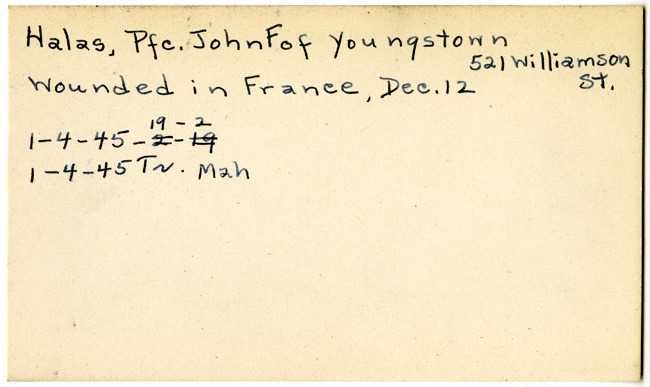 Halas, Pfc. John F of Youngstown
521 Williamson St.
Wounded in France, Dec. 12
19 - 2
1-4-45-2-19
1-4-45 Tr. Mah